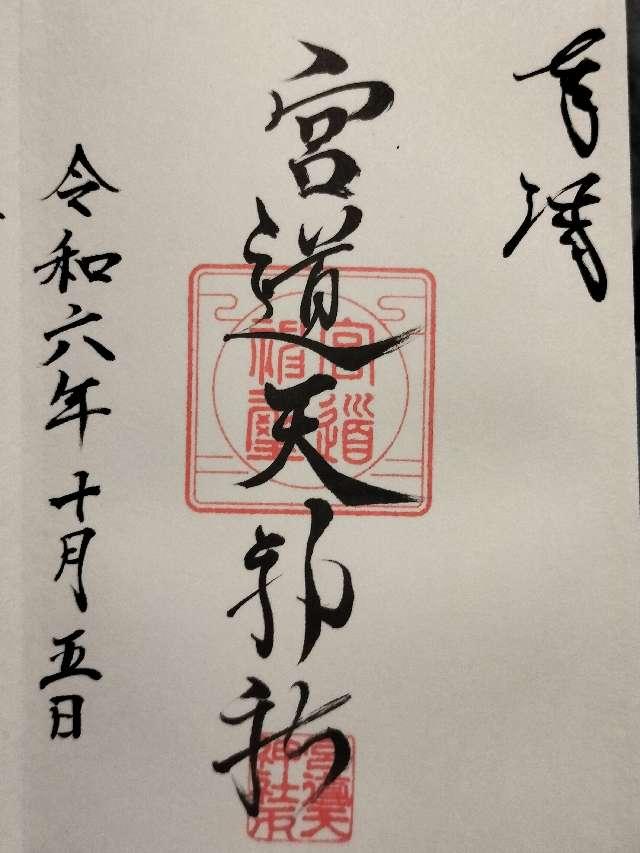 奉拝
宮道天神社
宮道
神璽
令和六年十月五日